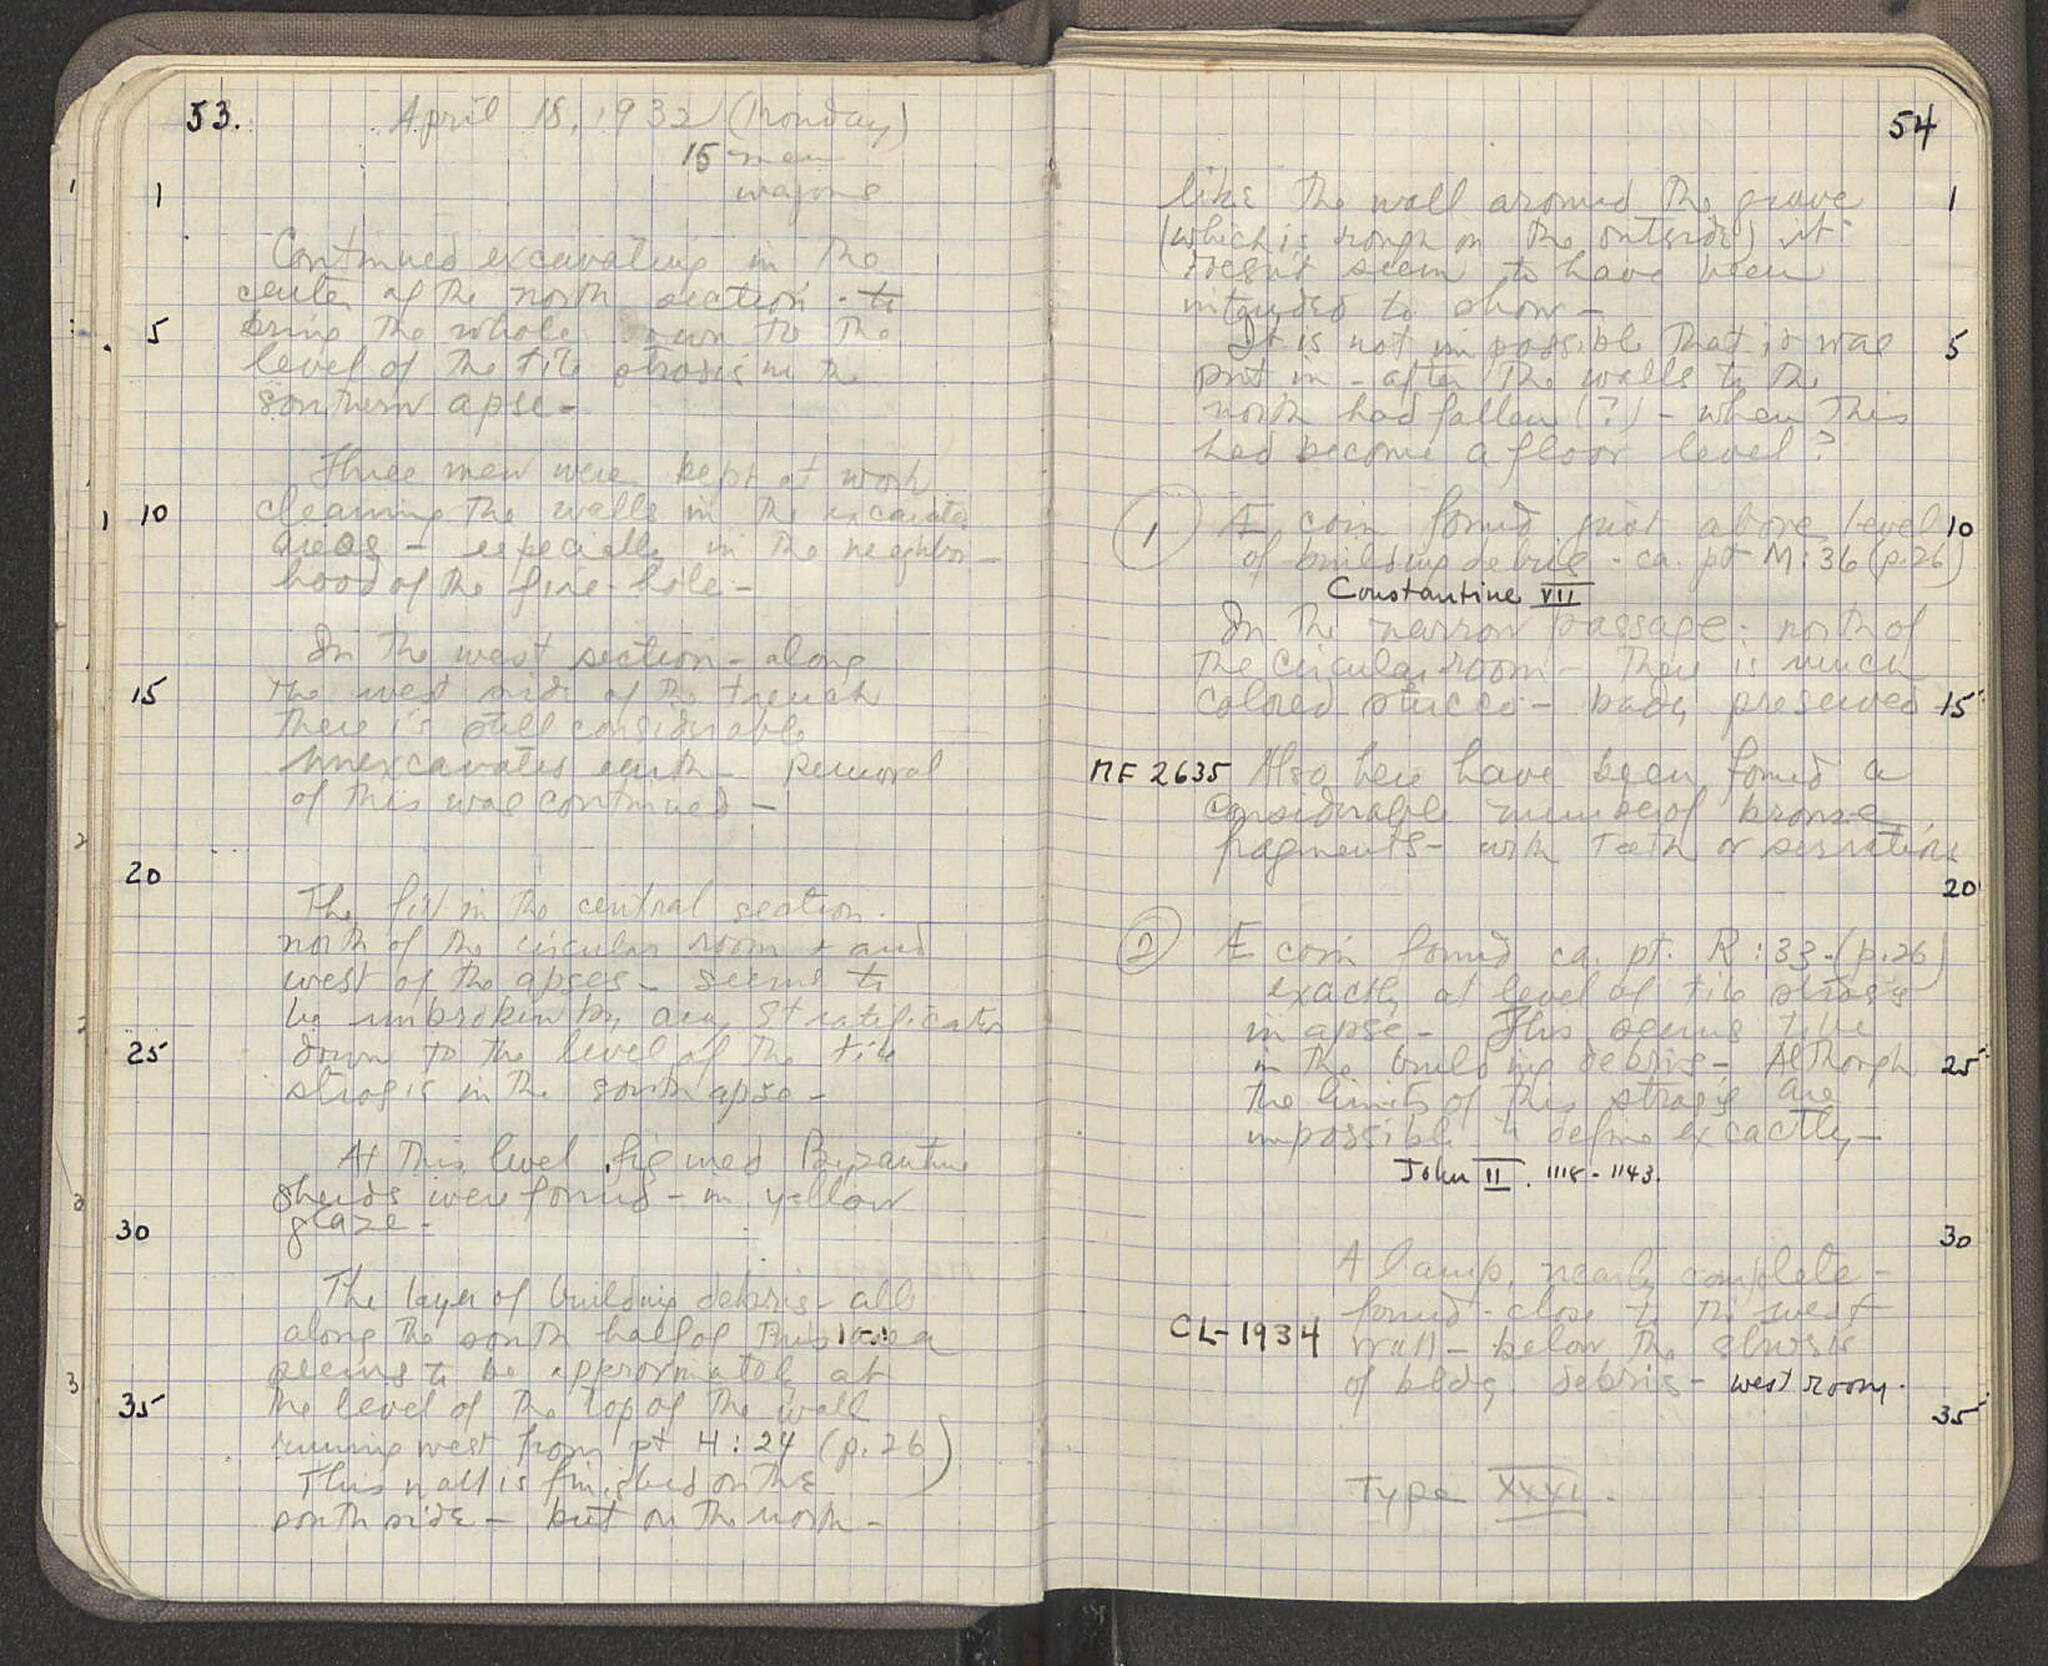 53.
April 18, 1932 (Monday)
15 men
wagons
1
Continued excavating in the
center of the north section - to
5
bring the whole down to the
level of the tile strosis in the
southern apse -
Three men were kept at work
10
cleaning the walls in the excavated
areas - especially in the neighbor-
hood of the fire-hole -
In the west section - along
15
the west side of the trench
there is still considerable
unexcavated earth - Removal
of this was continued -
20
The fill in the central section -
north of the circular room + and
west of the apses - seems to
be unbroken by any stratification
25
down to the level of the tile
strosis in the south apse -
At this level figured Byzantine
sherds were found - in yellow
30
glaze -
The layer of building debris - all
along the south half of this area
seems to be approximately at
35
the level of the top of the wall
running west from pt H:24 (p.26)
This wall is finished on the
south side - but on the north -
54
like the wall around the grave
1
(which is rough on the outside) it
doesn't seem to have been
intended to show -
It is not impossible that it was
5
put in - after the walls to the
north had fallen (?) - when this
had become a floor level?
1 Æ coin found just above level
10
of building debris - ca. pt M:36 (p.26)
Constantine VII
In the narrow passage - north of
the circular room - there is much
colored stucco - badly preserved
15
MF 2635 Also here have been found a
considerable number of bronze
fragments - with teeth or serrations
20
2 Æ coin found ca. pt. R:33 - (p.26)
exactly at level of tile strosis
in apse - This seems to be
in the building debris - Although
25
the limits of this strosis are
impossible to define excactly -
John II. 1118 - 1143.
30
A lamp, nearly complete -
found - close to the west
CL-1934 wall - below the strosis
of bldg. debris - west room.
35
Type XXXI.